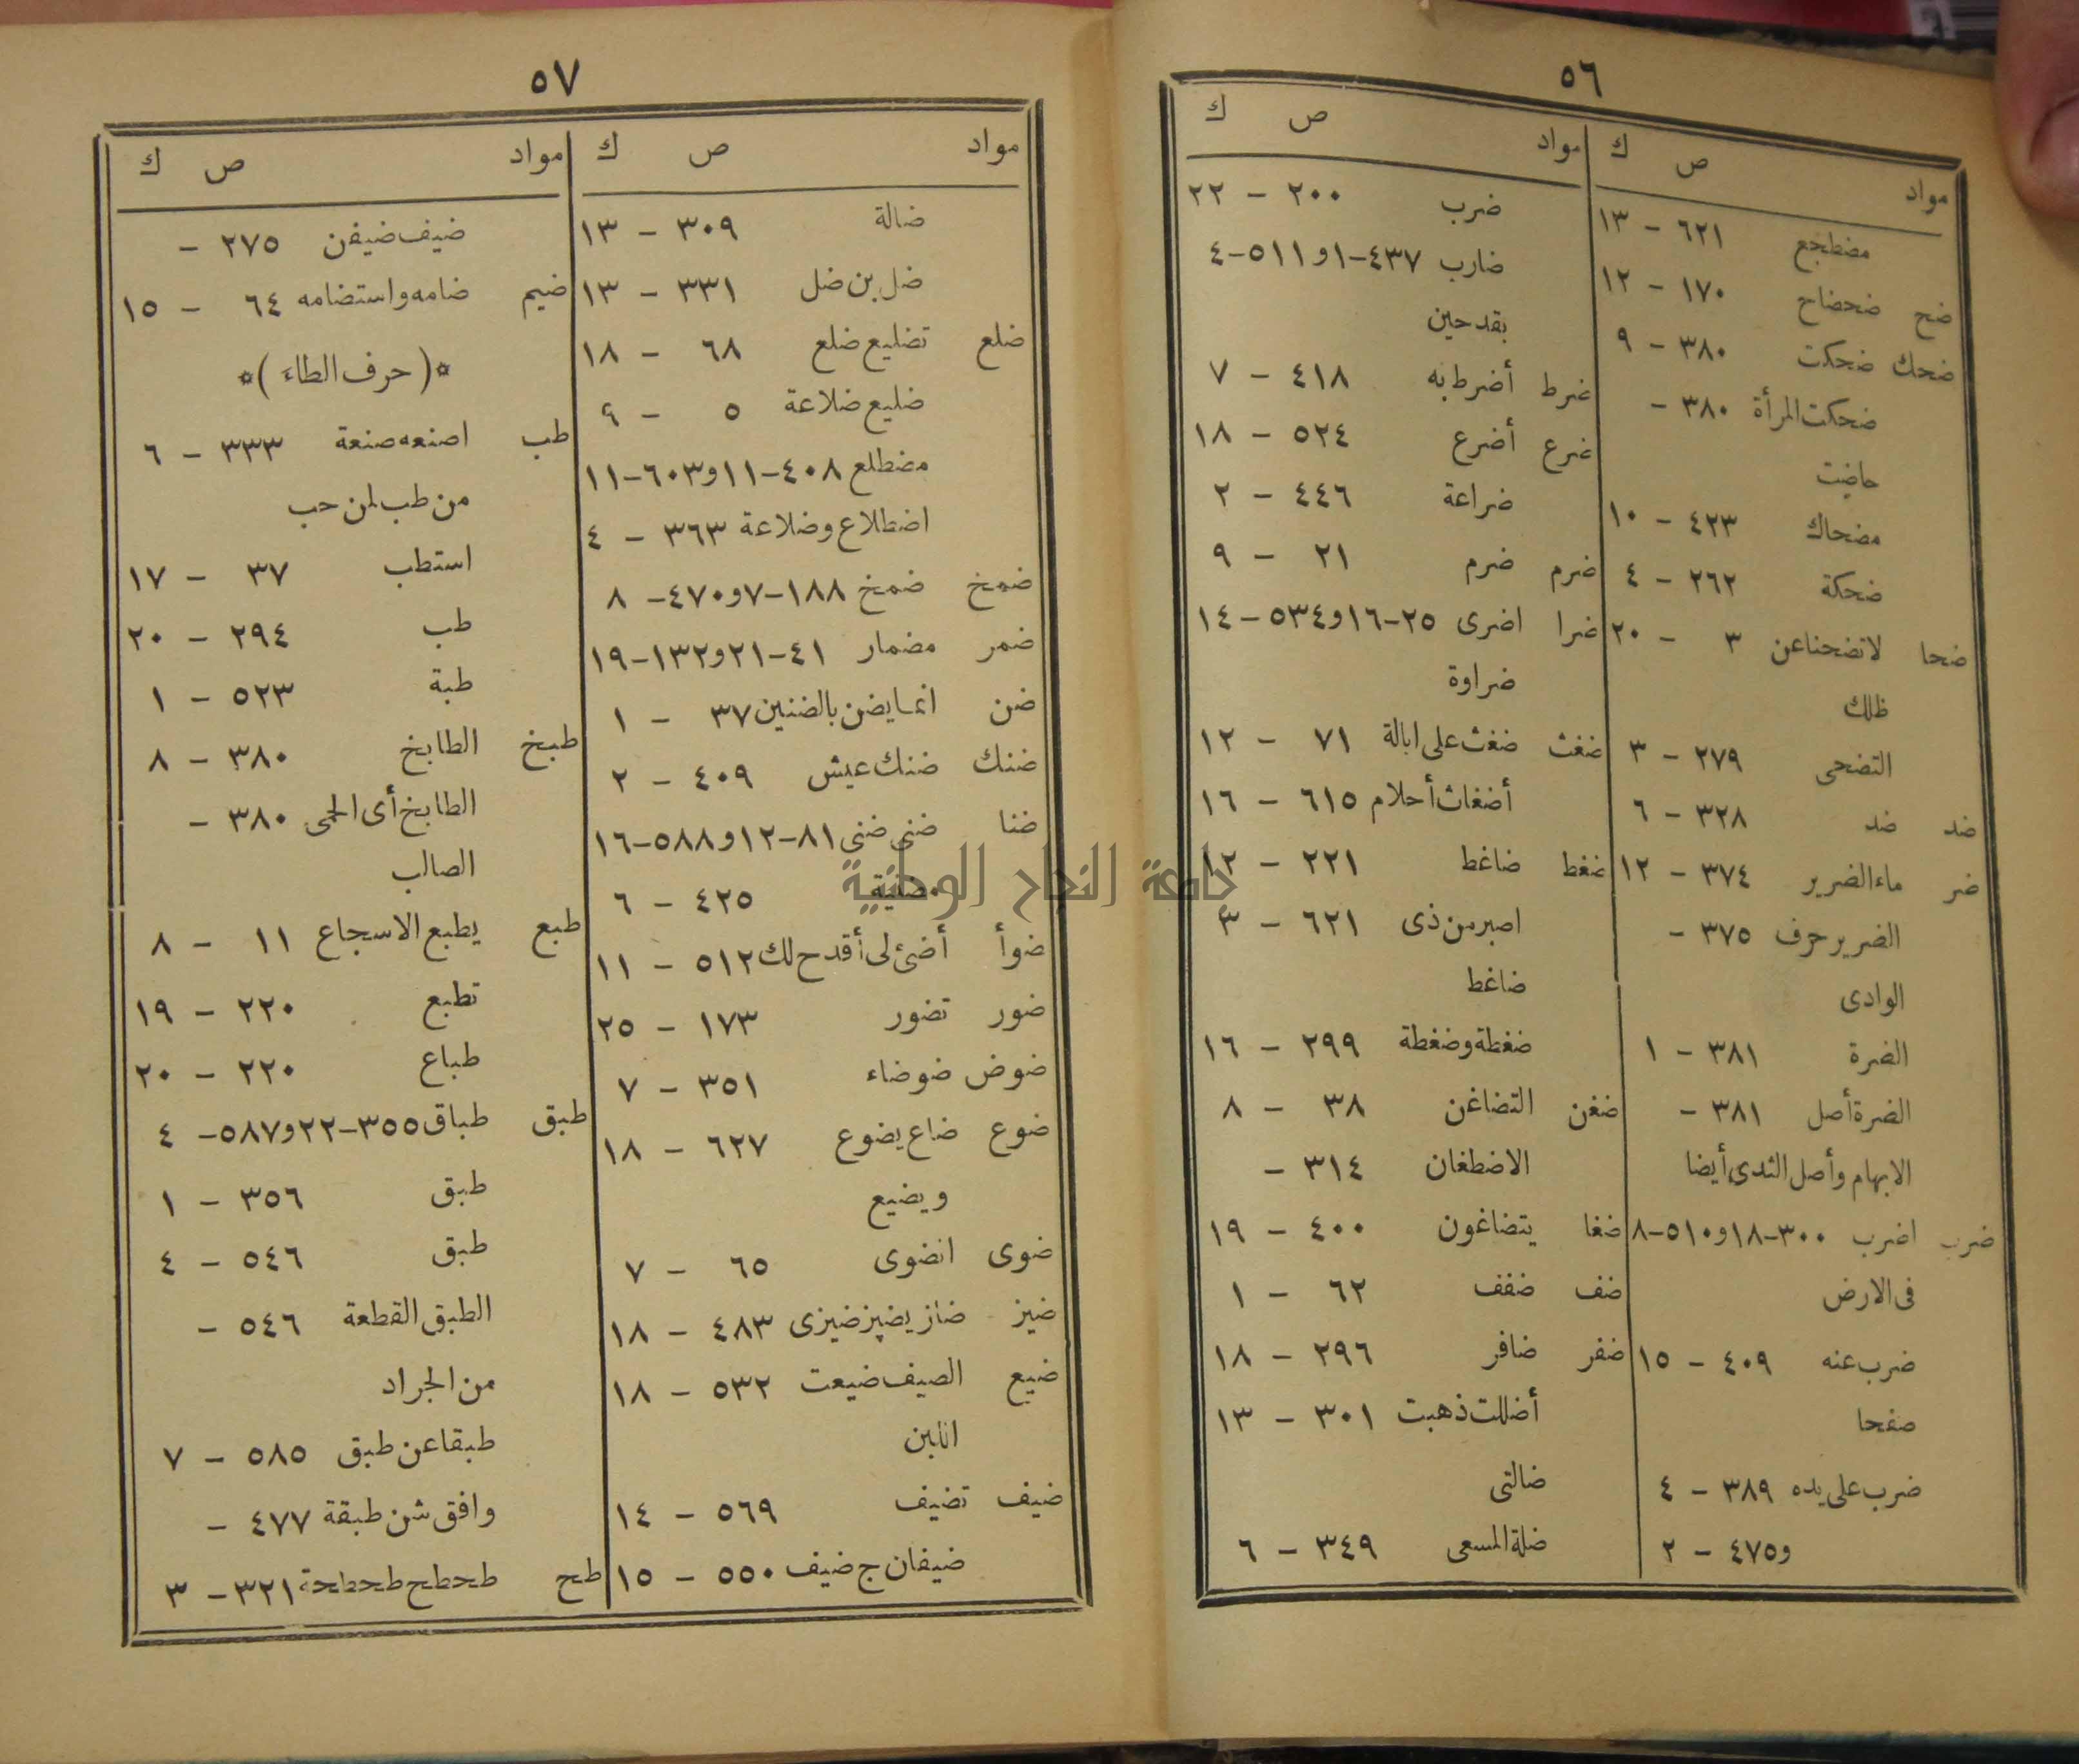 ٥٦
مواد ص ك
مضطجع ٦٢١ - ١٣
ضح ضحضاح ١٧٠ - ١٢
ضحك ضحكت ٣٨٠ - ٩
ضحكت المرأة ٣٨٠ -
حاضت
مضحاك ٤٢٣ - ١٠
ضحكة ٢٦٢ - ٤
ضحا لاتضحنا عن ٣ - ٢٠
ظلك
التضحى ٢٧٩ - ٣
ضد ضد ٣٢٨ - ٦
ضر ماء الضرير ٣٧٤ - ١٢
الضرير حرف ٣٧٥ -
الوادى
الضرة ٣٨١ - ١
الضرة أصل ٣٨١ -
الابهام وأصل الثدى أيضا
ضرب اضرب ٣٠٠-١٨و٥١٠-٨
فى الارض
ضرب عنه ٤٠٩ - ١٥
صفحا
ضرب على يده ٣٨٩ - ٤
و٤٧٥ - ٢
مواد ص ك
ضرب ٢٠٠ - ٢٢
ضارب ٤٣٧-١و٥١١-٤
بقدحين
ضرط أضرط به ٤١٨ - ٧
ضرع أضرع ٥٢٤ - ١٨
ضراعة ٤٤٦ - ٢
ضرم ضرم ٢١ - ٩
ضرا اضرى ٢٥-١٦و٥٣٤-١٤
ضراوة
ضغث ضغث على ابالة ٧١ - ١٢
أضغاث أحلام ٦١٥ - ١٦
ضغط ضاغط ٢٢١ - ١٢
اصبر من ذى ٦٢١ - ٣
ضاغط
ضغطة وضغطة ٢٩٩ - ١٦
ضغن التضاغن ٣٨ - ٨
الاضطغان ٣١٤ -
ضغا يتضاغون ٤٠٠ - ١٩
ضف ضفف ٦٢ - ١
ضفر ضافر ٢٩٦ - ١٨
أضللت ذهبت ٣٠١ - ١٣
ضالتى
ضلة المسعى ٣٤٩ - ٦
٥٧
مواد ص ك
ضالة ٣٠٩ - ١٣
ضل بن ضل ٣٣١ - ١٣
ضلع تضليع ضلع ٦٨ - ١٨
ضليع ضلاعة ٥ - ٩
مضطلع ٤٠٨-١١و٦٠٣-١١
اضطلاع وضلاعة ٣٦٣ - ٤
ضمخ ضمخ ١٨٨-٧و٤٧٠- ٨
ضمر مضمار ٤١-٢١و١٣٢-١٩
ضن انما يضن بالضنين ٣٧ - ١
ضنك ضنك عيش ٤٠٩ - ٢
ضنا ضنى ضنى ٨١-١٢و٥٨٨-١٦
مضنية ٤٢٥ - ٦
ضوأ أضئ لى أقدح لك ٥١٢ - ١١
ضور تضور ١٧٣ - ٢٥
ضوض ضوضاء ٣٥١ - ٧
ضوع ضاع يضوع ٦٢٧ - ١٨
ويضيع
ضوى انضوى ٦٥ - ٧
ضيز ضاز يضيز ضيزى ٤٨٣ - ١٨
ضيع الصيف ضيعت ٥٣٢ - ١٨
اللبن
ضيف تضيف ٥٦٩ - ١٤
ضيفان ج ضيف ٥٥٠ - ١٥
مواد ص ك
ضيف ضيفن ٢٧٥ -
ضيم ضامه واستضامه ٦٤ - ١٥
*( حرف الطاء )*
طب اصنعه صنعة ٣٣٣ - ٦
من طب لمن حب
استطب ٣٧ - ١٧
طب ٢٩٤ - ٢٠
طبة ٥٢٣ - ١
طبخ الطابخ ٣٨٠ - ٨
الطابخ أى الحمى ٣٨٠ -
الصالب
طبع يطبع الاسجاع ١١ - ٨
تطبع ٢٢٠ - ١٩
طباع ٢٢٠ - ٢٠
طبق طباق ٣٥٥-٢٢و٥٨٧- ٤
طبق ٣٥٦ - ١
طبق ٥٤٦ - ٤
الطبق القطعة ٥٤٦ -
من الجراد
طبقا عن طبق ٥٨٥ - ٧
وافق شن طبقة ٤٧٧ -
طح طحطح طحطحة ٣٢١- ٣
جامعة النجاح الوطنية